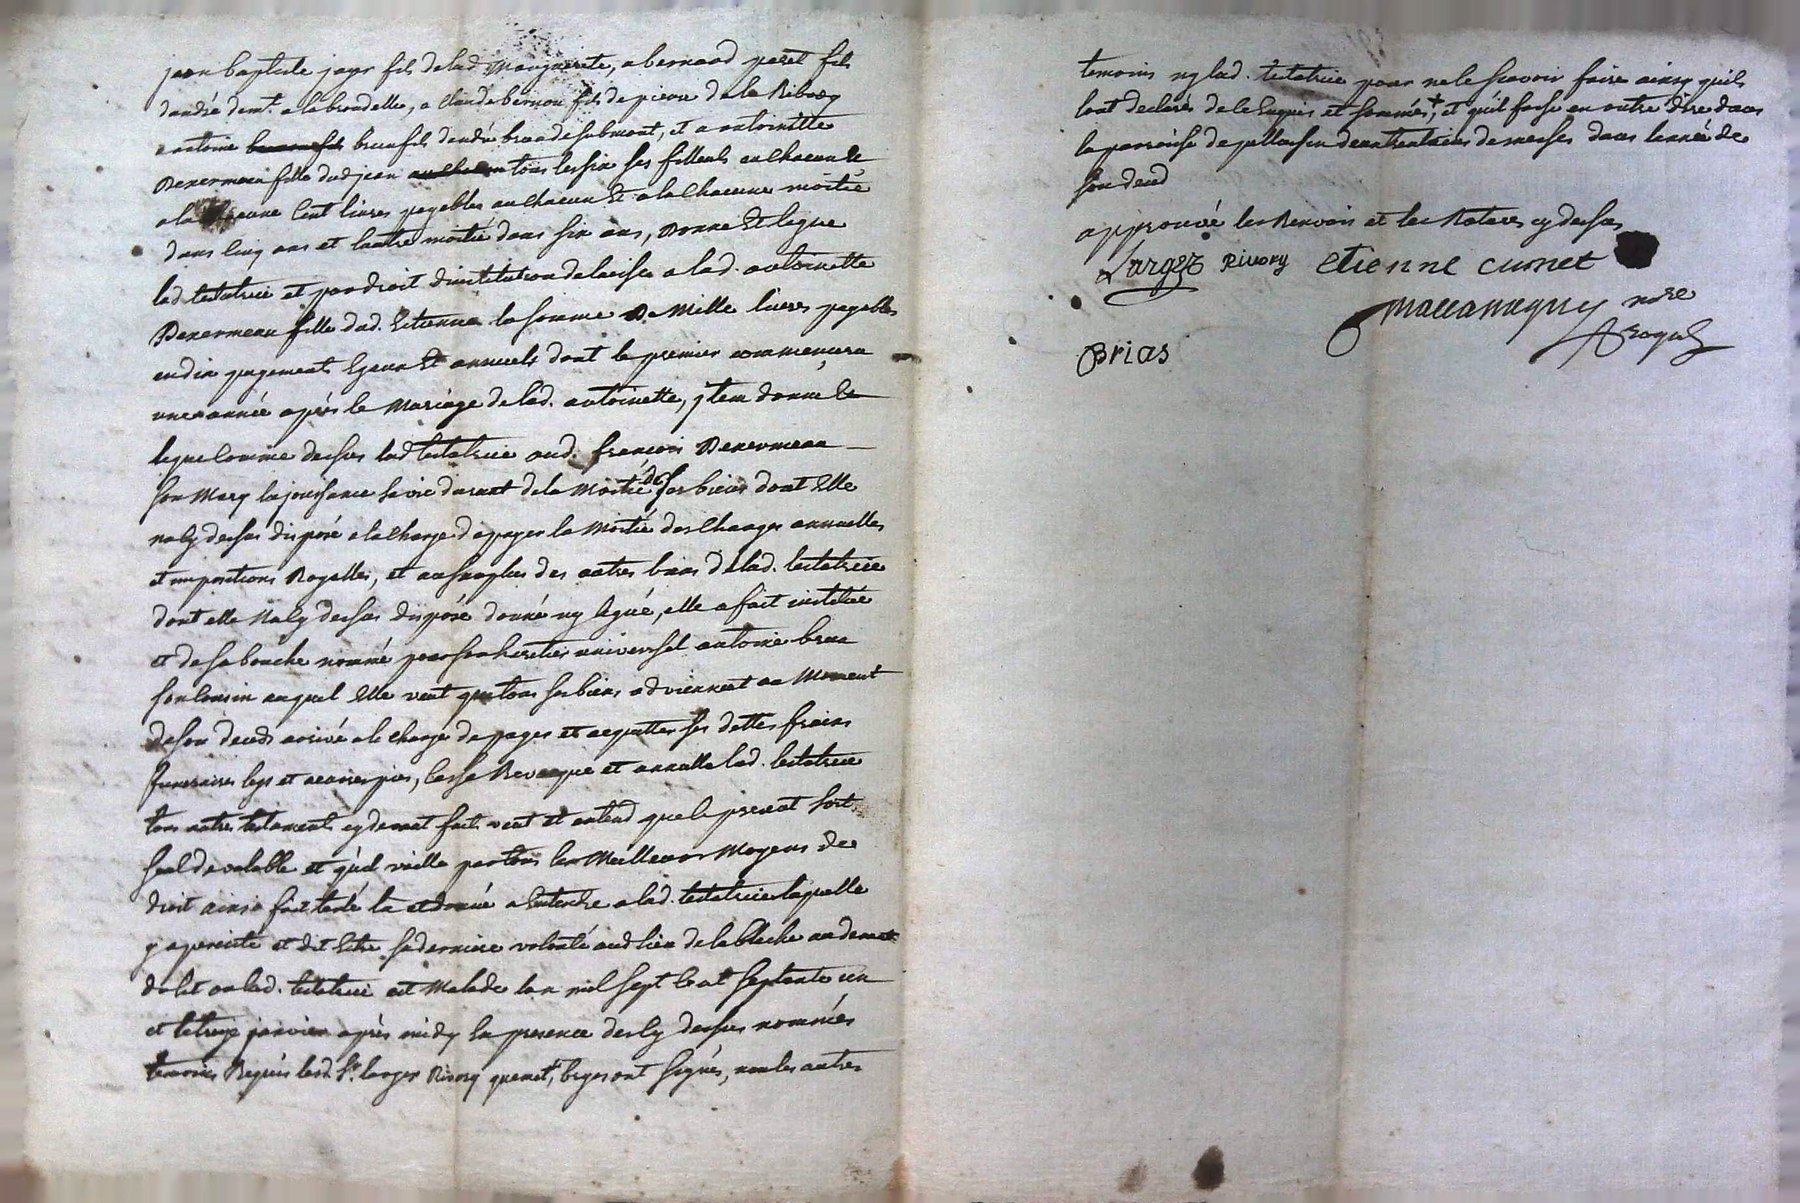 jean baptiste jayr fils delad Marguerite, a bernard paret fils
dandré demt. a la brondelle, a Claude bernou fils de pierre de la Ribory
antoine brun fils dandré brun de submont, et a antoinette
Dexermeau fille dud jean tous les six ses filleuls au chacun Et
a la chacune Cent livres payables au chacun Et a la Chacune moitié
dans cinq ans et lautre moitié dans six ans, Donne Et legue
lad testatrice et par droit dinstitution delaisse a lad. antoinette
Dexermeau fille dud. Estienne la somme De Mille livres payables
en dix payements Egaux Et annuels dont le premier commencera
une année après le Mariage de lad. antoinette, jtem donne Et
legue Comme dessus lad testatrice aud. françois Dexermeau
son Mary la jouissance sa vie durant de la Moitié de ses biens dont Elle
na cy dessus disposé a la charge de payer la Moitié des Charges annuelles
et impositions Royalles, et au surplus des autres biens de lad. testatrice
dont elle Na cy dessus disposé donné ny legué, elle a fait institué
et de sa bouche nommé pour son heritier universel antoine brun
son Cousin auquel Elle veut que tous ses biens adviennent au Moment
de son deceds arrivé a la charge de payer et acquitter ses dettes fraix
funeraires legs et œuvres pies, Casse Revocque et annulle lad. testatrice
tous autres testaments cy devant faits veut et entend que le present soit
seul de valable et quil vaille par tous les Meilleurs Moyens de
droit ainsi fait testé lu et donné a Entendre a lad. testatrice laquelle
y a persisté et dit Estre sa derniere volonté aud lieu de la bleche au devant
du lit ou lad. testatrice est Malade lan mil sept Cent septante un
et le treze janvier après midy En presence des Cy dessus nommés
temoins Requis lesd. Sr. larger Rivory quenet, brias ont signés, non les autres
temoins ny lad. testatrice pour ne le scavoir faire ainsy quils
lont declaré de ce Enquis et sommés, + et quil fasse en outre dire dans
la paroisse de de messes dans lannée de
son deced
approuvé les Renvois et les Ratures cy dessus
Larger Rivory etienne cunet
nore
Royal
Brias